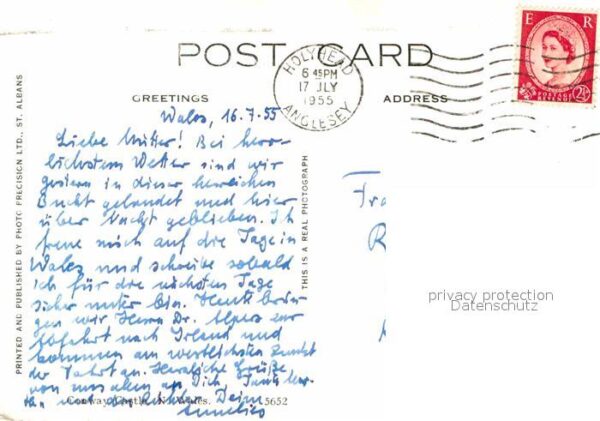 POST CARD
HOLYHEAD
6 45 PM
17 JLY
1955
ANGLESEY
E R
POSTAGE
REVENUE
2½
GREETINGS
ADDRESS
Wales, 16.7.55
Liebe Mutter! Bei herr-
lichstem Wetter sind wir
gestern in dieser herrlichen
Bucht gelandet und hier
über Nacht geblieben. Ich
freue mich auf die Tage in
Wales und schreibe sobald
ich für die nächsten Tage
sicher unter bin. Heute brin-
gen wir Herrn Dr. Alpers zur
Abfahrt nach Irland und
kommen am westlichsten Punkt
der Fahrt an. Herzliche Grüße,
von uns allen an Dich, Tante
und Deine
Annelies
Conway Castle, N. Wales.
5652
PRINTED AND PUBLISHED BY PHOTO PRECISION LTD., ST. ALBANS
THIS IS A REAL PHOTOGRAPH
Fra
R
privacy protection
Datenschutz